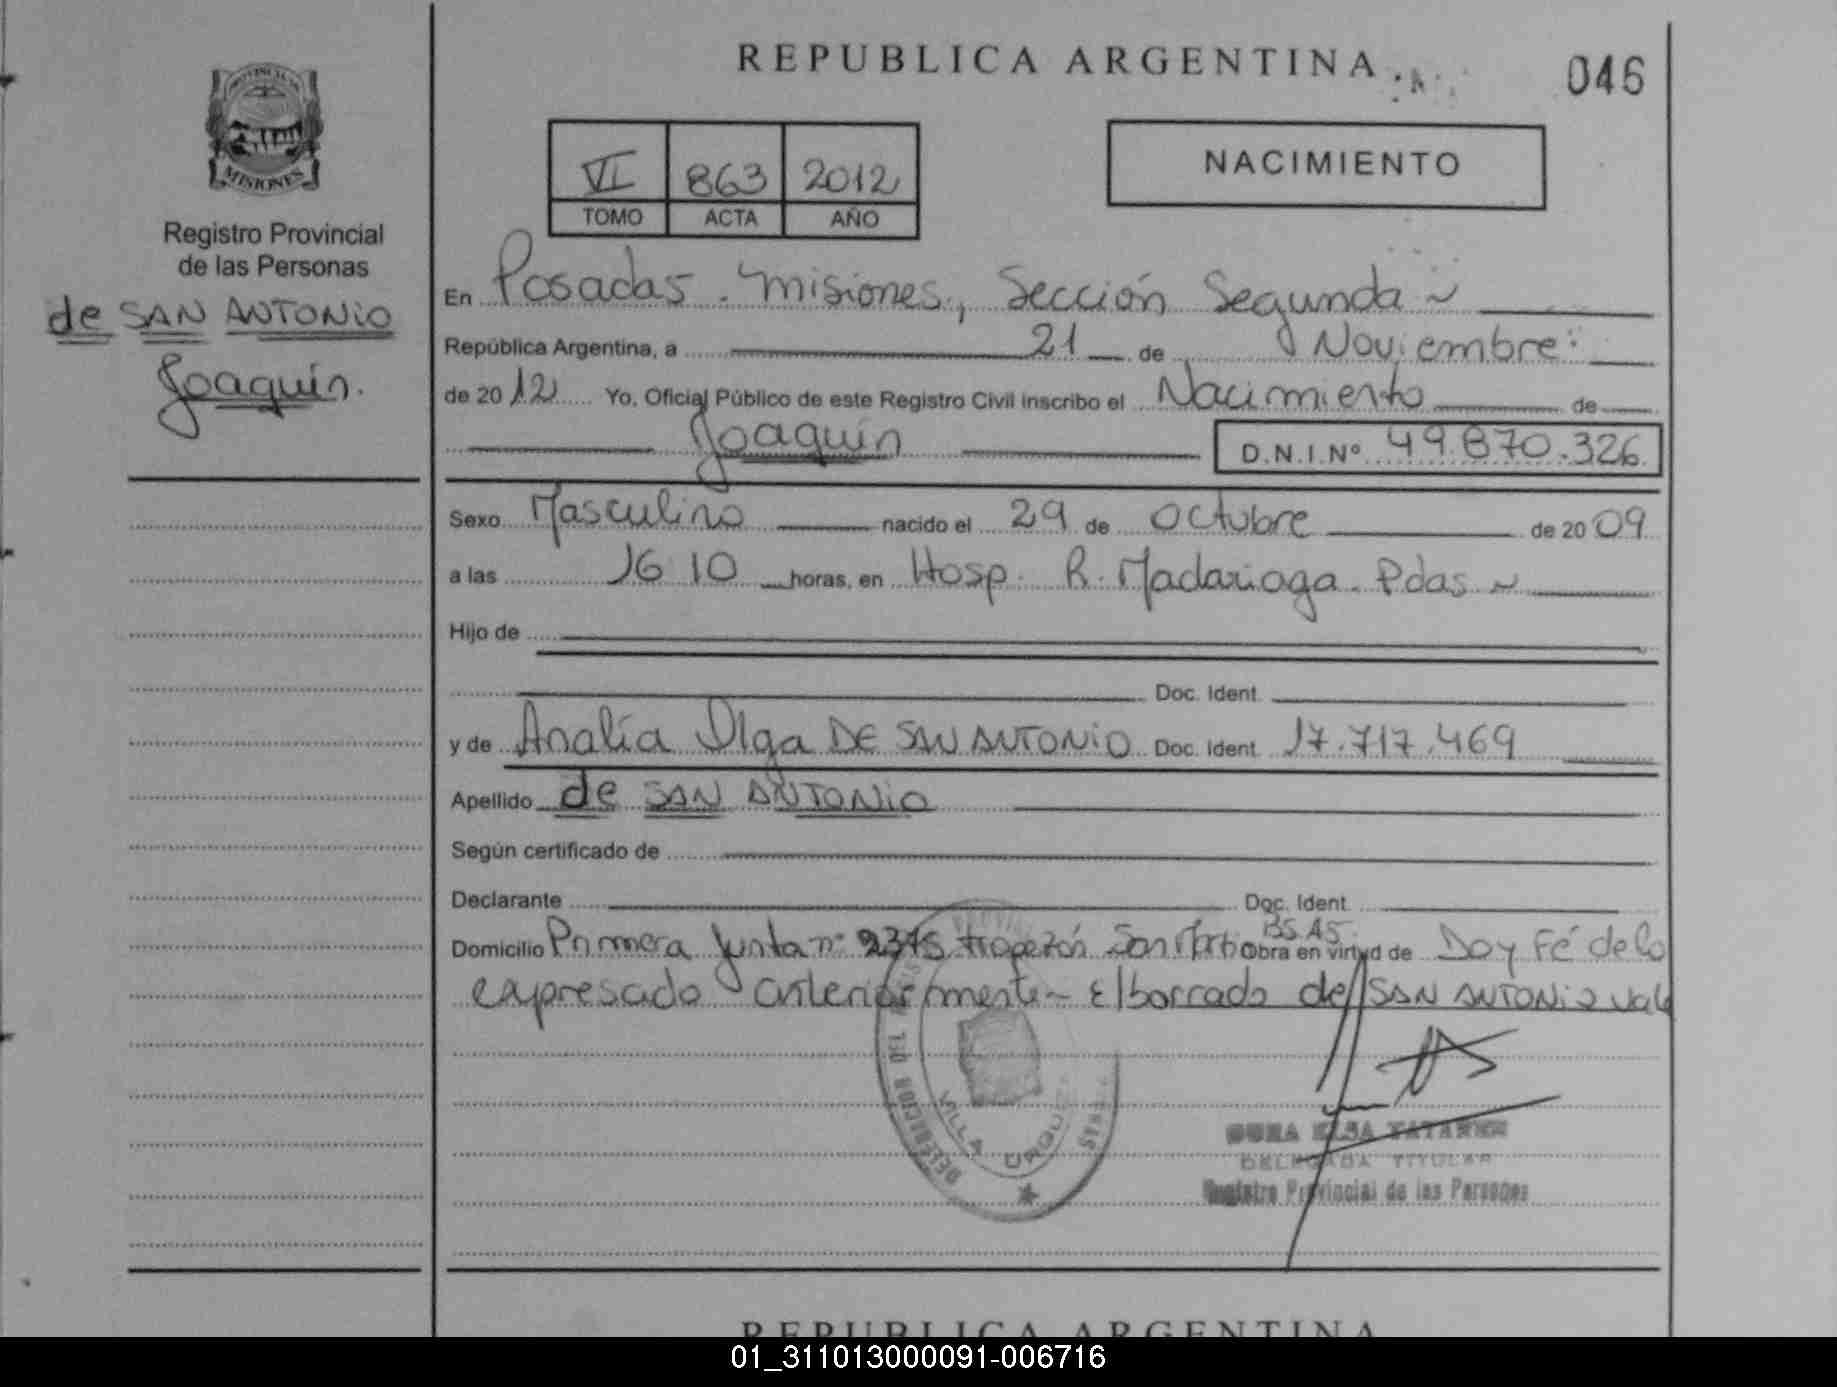 REPUBLICA ARGENTINA
046
PROVINCIA
MISIONES
Registro Provincial
de las Personas
de SAN ANTONIO
Joaquín.
VI 863 2012
TOMO ACTA AÑO
NACIMIENTO
En Posadas. Misiones, Sección Segunda ~
República Argentina, a 21 de Noviembre
de 2012 Yo, Oficial Público de este Registro Civil inscribo el Nacimiento de
Joaquín D.N.I.Nº 49.870.326
Sexo Masculino nacido el 29 de Octubre de 2009
a las 16 10 horas, en Hosp. R. Madariaga. Pdas ~
Hijo de
Doc. Ident.
y de Analía Olga DE SAN ANTONIO Doc. Ident. 17.717.469
Apellido de SAN ANTONIO
Según certificado de
Declarante Doc. Ident.
Domicilio Primera Junta nº 2375 tropezón San Martin BS.AS. Obra en virtud de Doy Fé de lo
expresado anteriormente ~ El borrado de SAN ANTONIO vale
DELEGACION DEL
VILLA URQUIZA
DELEGADA TITULAR
Registro Provincial de las Personas
REPUBLICA ARGENTINA
01_311013000091-006716